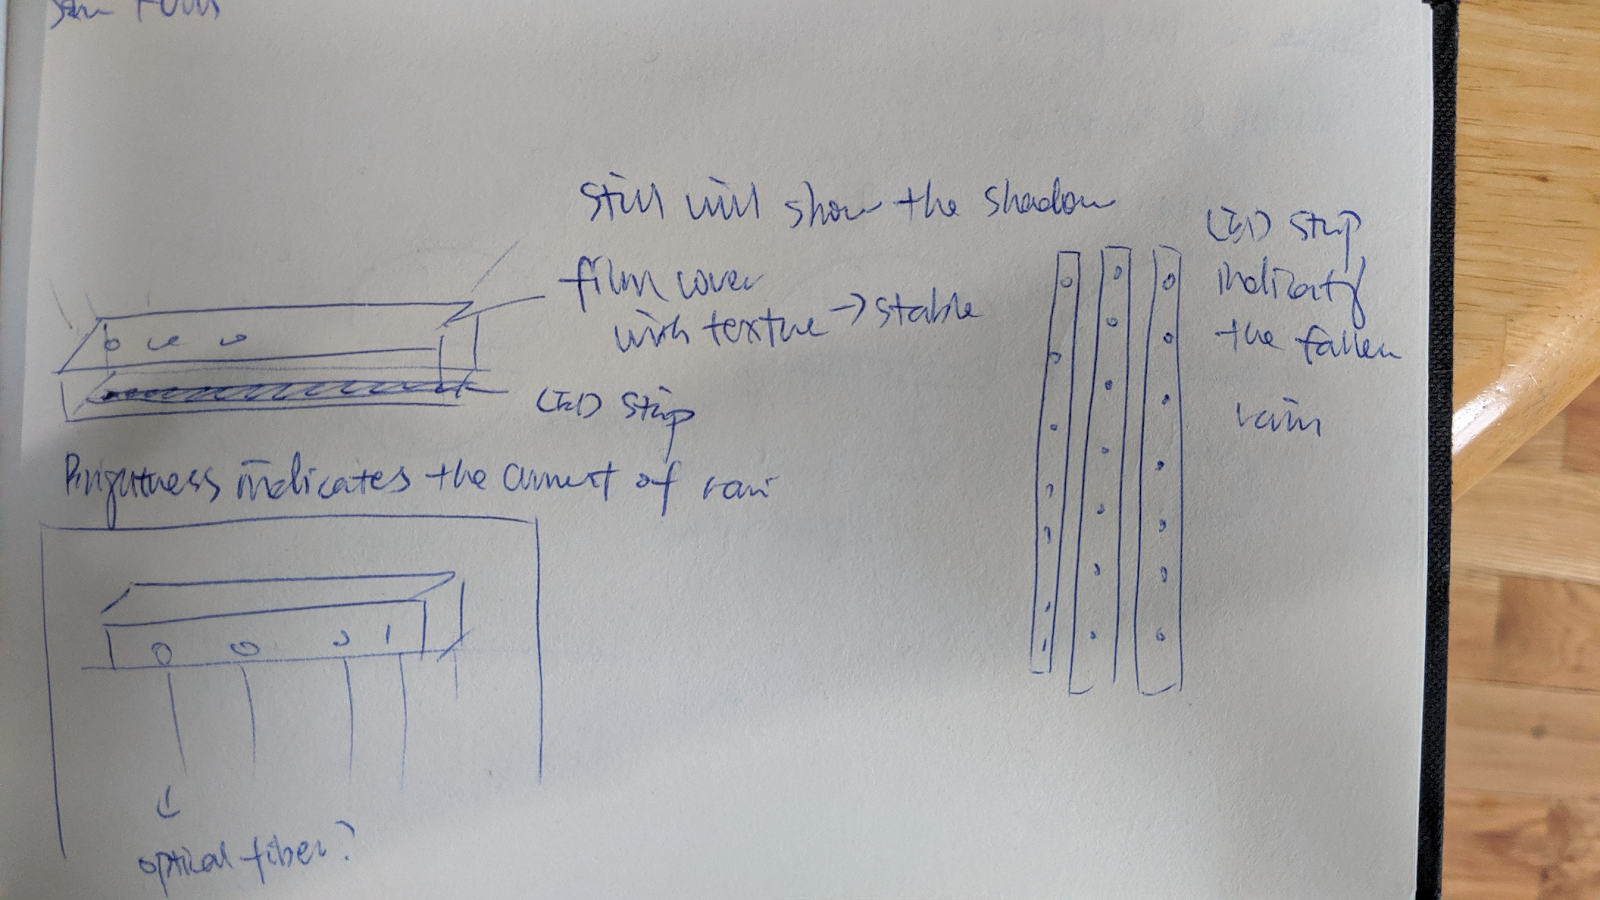 still will show the shadow
film cover
with texture → stable
LED strip
Brightness indicates the amount of rain
optical fiber?
LED strip
indicating
the fallen
rain